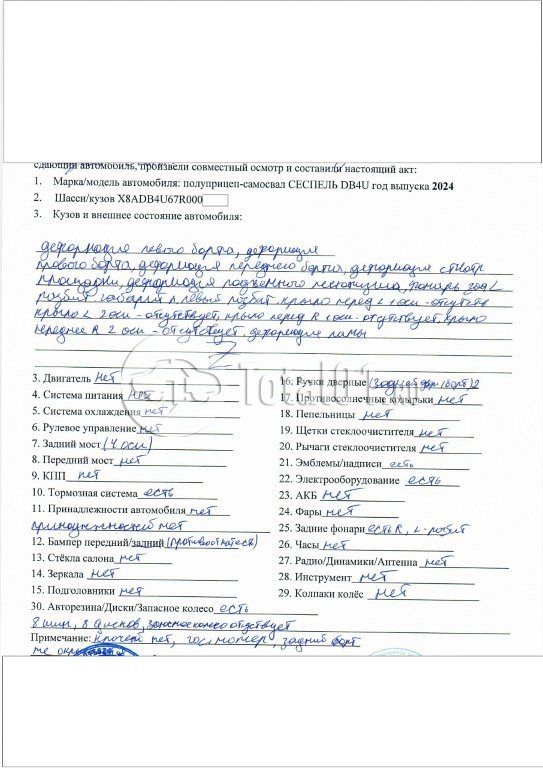 сдающий автомобиль, произвели совместный осмотр и составили настоящий акт:
1. Марка/модель автомобиля: полуприцеп-самосвал СЕСПЕЛЬ DB4U год выпуска 2024
2. Шасси/кузов X8ADB4U67R000
3. Кузов и внешнее состояние автомобиля:
деформация левого борта, деформация
правого борта, деформация переднего борта, деформация
площадки, деформация фонарь зад L
разбит, габарит п. левый разбит, крыло перед L 1 оси - отсутств
крыло L 2 оси - отсутствует, крыло перед R 1 оси - отсутствует, крыло
переднее R 2 оси - отсутствует, деформация рамы
Total01.ru
3. Двигатель нет
4. Система питания нет
5. Система охлаждения нет
6. Рулевое управление нет
7. Задний мост (4 оси)
8. Передний мост нет
9. КПП нет
10. Тормозная система есть
11. Принадлежности автомобиля нет
принадлежностей нет
12. Бампер передний/задний (противооткатн)
13. Стёкла салона нет
14. Зеркала нет
15. Подголовники нет
16. Ручки дверные 2
17. Противосолнечные козырьки нет
18. Пепельницы нет
19. Щетки стеклоочистителя нет
20. Рычаги стеклоочистителя нет
21. Эмблемы/надписи есть
22. Электрооборудование есть
23. АКБ нет
24. Фары нет
25. Задние фонари есть R, L - разбит
26. Часы нет
27. Радио/Динамики/Антенна нет
28. Инструмент нет
29. Колпаки колёс нет
30. Авторезина/Диски/Запасное колесо есть
8 шин, 8 дисков, запасное колесо отсутствует
Примечание: Ключей нет, гос, номер, задний борт
не